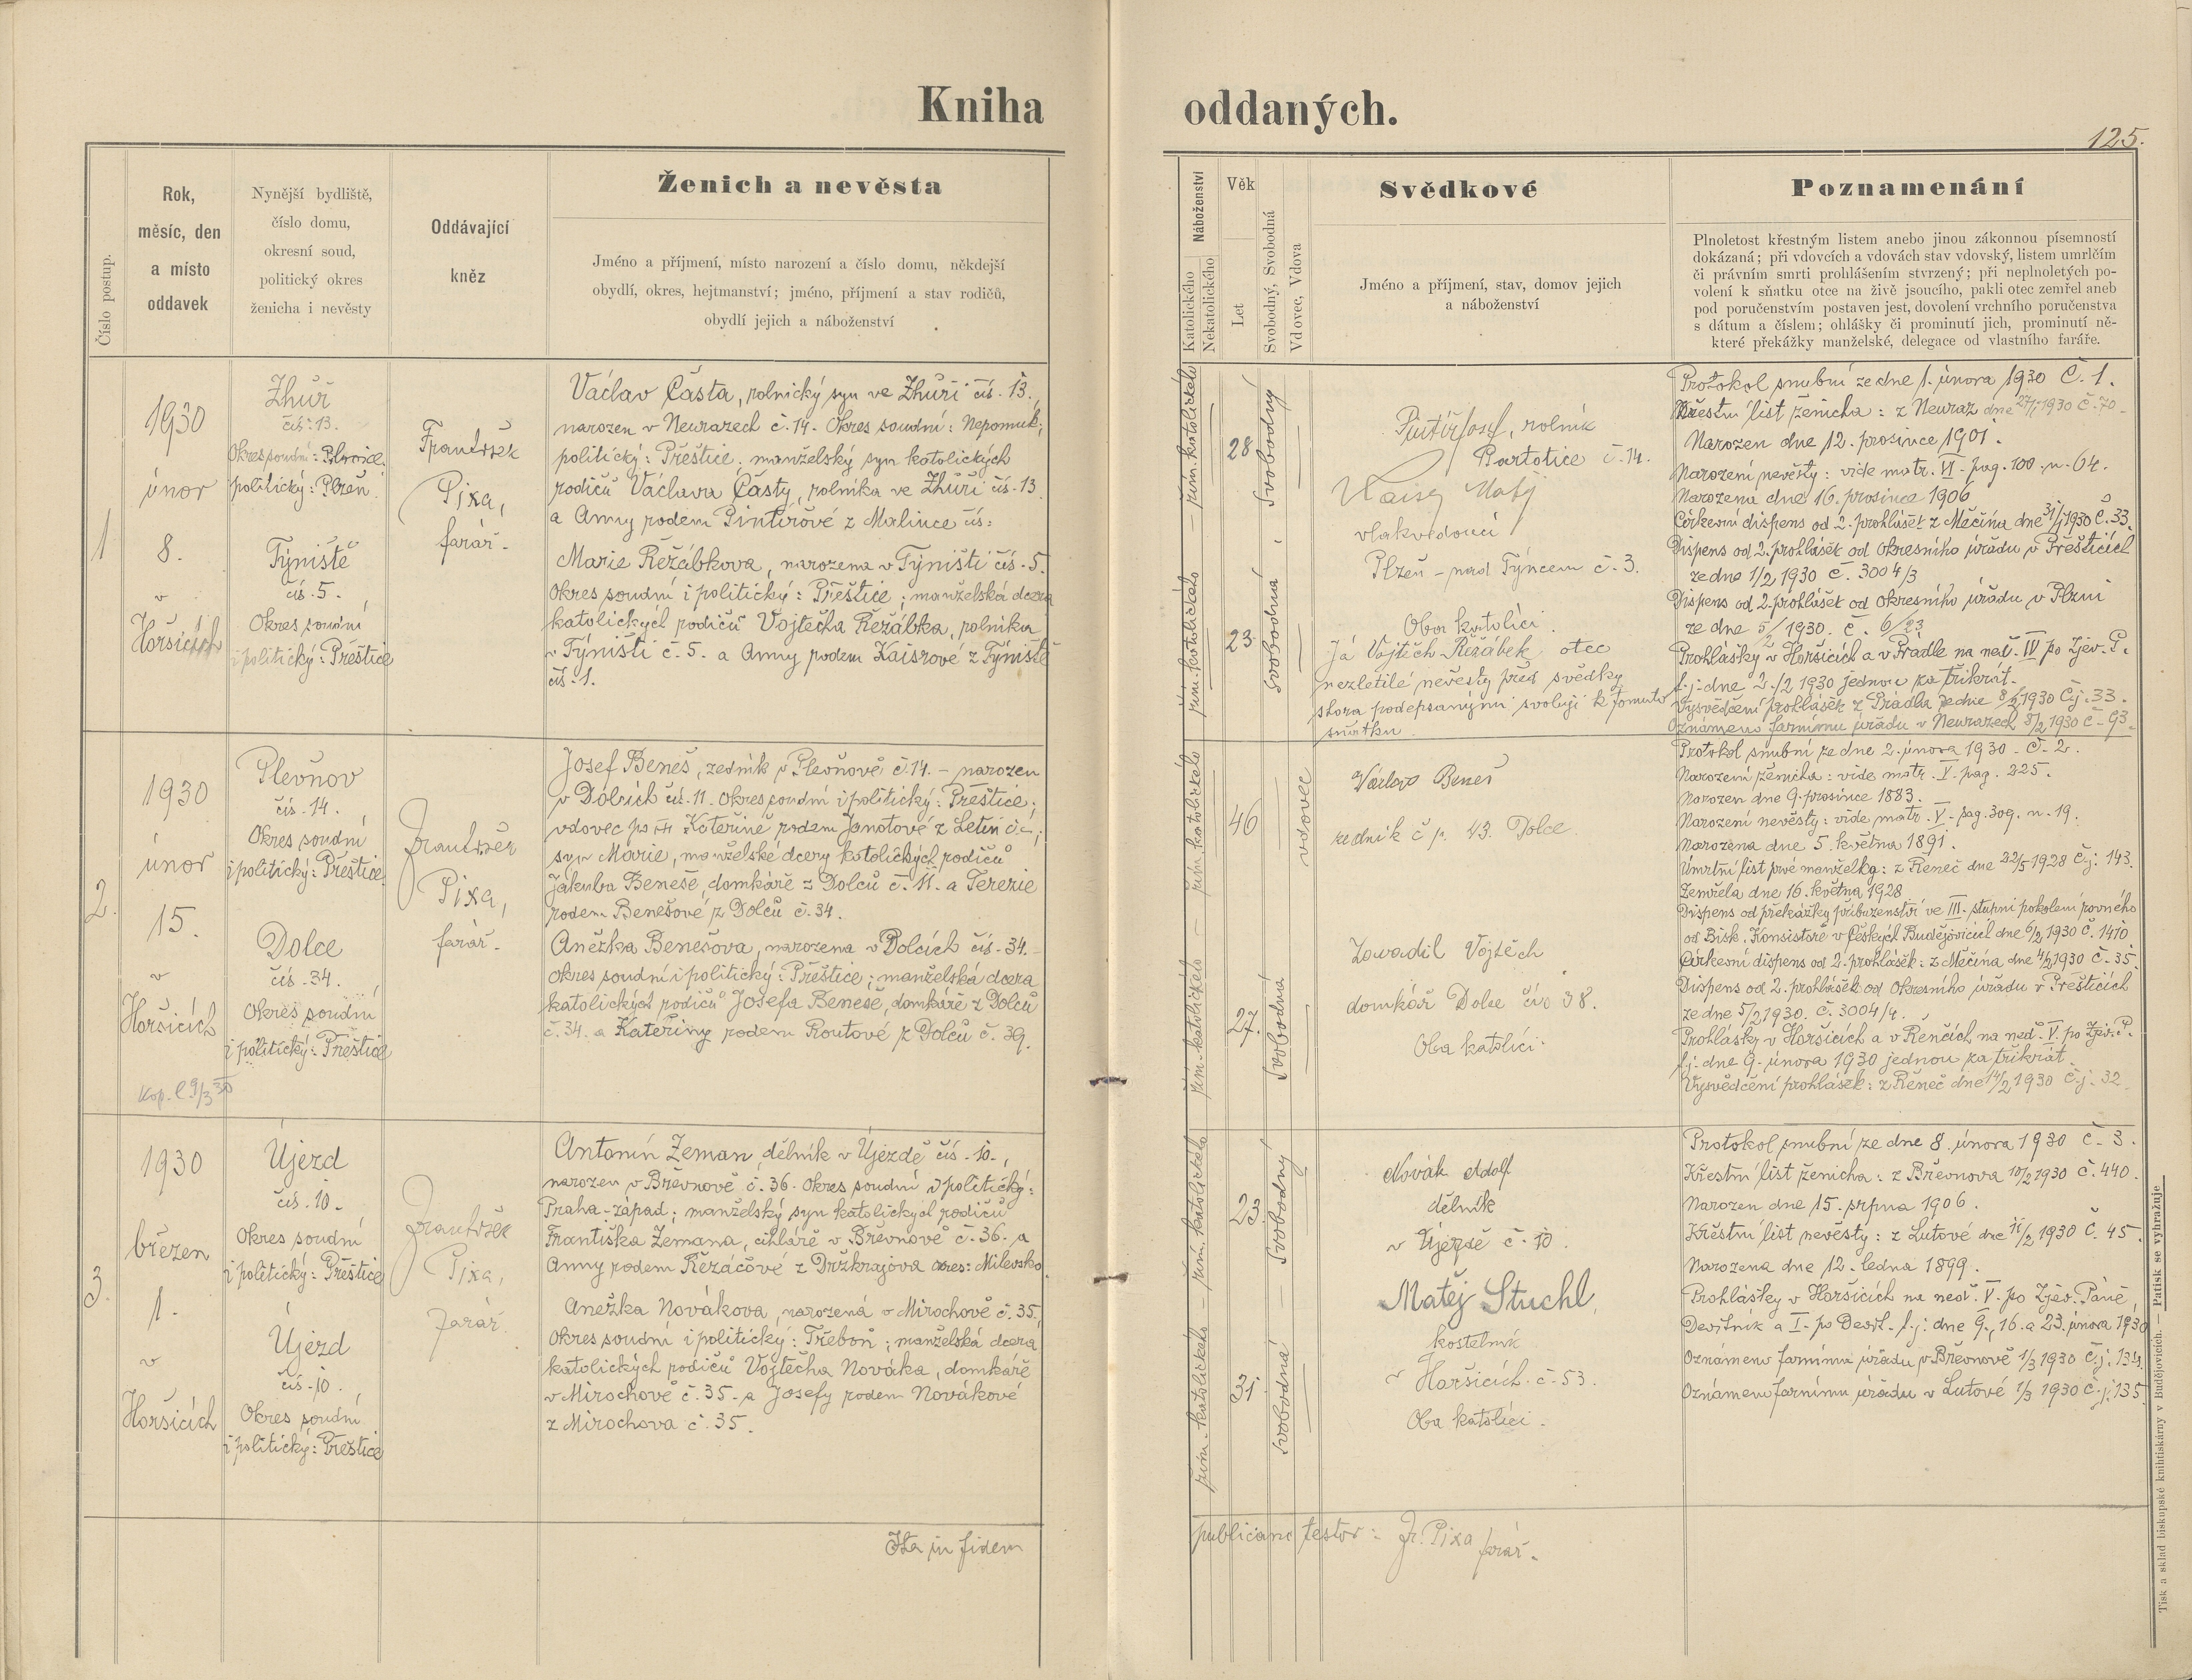 Kniha oddaných.
125.
Číslo postup.
Rok,
měsíc, den
a místo
oddavek
Nynější bydliště,
číslo domu,
okresní soud,
politický okres
ženicha i nevěsty
Oddávající
kněz
Ženich a nevěsta
Jméno a příjmení, místo narození a číslo domu, někdejší
obydlí, okres, hejtmanství; jméno, příjmení a stav rodičů,
obydlí jejich a náboženství
Náboženství
Katolického
Nekatolického
Věk
Let
Svobodný, Svobodná
Vdovec, Vdova
Svědkové
Jméno a příjmení, stav, domov jejich
a náboženství
Poznamenání
Plnoletost křestným listem anebo jinou zákonnou písemností
dokázaná; při vdovcích a vdovách stav vdovský, listem umrlčím
či právním smrti prohlášením stvrzený; při neplnoletých po-
volení k sňatku otce na živě jsoucího, pakli otec zemřel aneb
pod poručenstvím postaven jest, dovolení vrchního poručenstva
s dátum a číslem; ohlášky či prominutí jich, prominutí ně-
které překážky manželské, delegace od vlastního faráře.
1
1930
únor
8.
v
Horšicích
Zhůř
čís. 13.
Okres soudní: Plovice.
politický: Plzeň.
Týniště
čís. 5.
Okres soudní
i politický: Přeštice
František
Pixa,
farář.
Václav Částa, rolnický syn ve Zhůři čís. 13.,
narozen v Neurazech č. 14. Okres soudní: Nepomuk;
politický: Přeštice; manželský syn katolických
rodičů Václava Částy, rolníka ve Zhůři čís. 13
a Anny rodem Pintířové z Malince čís:
Marie Řežábkova, narozena v Týništi čís. 5.
Okres soudní i politický: Přeštice; manželská dcera
katolických rodičů Vojtěcha Řežábka, rolníka
v Týništi č. 5. a Anny rodem Kaisrové z Týniště
čís. 1.
řím. katolického
28
svobodný
řím. katolického
23
svobodná
Pintíř Josef, rolník
Partotice č. 14.
Kaisr Matěj
vlakvedoucí
Plzeň - nad Týncem č. 3.
Oba katolíci.
Já Vojtěch Řežábek otec
nezletilé nevěsty před svědky
shora podepsanými svoluji k tomuto
sňatku.
Protokol snubní ze dne 1. února 1930 Č. 1.
Křestní list ženicha: z Neuraz dne 27/1 1930 č. 70.
Narozen dne 12. prosince 1901.
Narození nevěsty: vide matr. VI. pag. 100. n. 64.
Narozena dne 16. prosince 1906
Církevní dispens od 2. prohlášek z Měčína dne 31/1 1930 č. 33.
Dispens od 2. prohlášek od okresního úřadu v Přešticích
ze dne 1/2 1930 č. 3004/3
Dispens od 2. prohlášek od okresního úřadu v Plzni
ze dne 5/2 1930. č. 6/23
Prohlášky v Horšicích a v Prádle na ned. IV po Zjev. P.
t. j. dne 2./2 1930 jednou za třikrát.
Vysvědčení prohlášek z Prádla ze dne 8/2 1930 Čj. 33.
Oznámeno farnímu úřadu v Neurazech 8/2 1930 č. 93.
2.
1930
únor
15.
v
Horšicích
Kop. č. 9/3 30
Plevňov
čís. 14.
Okres soudní
i politický: Přeštice
Dolce
čís. 34.
Okres soudní
i politický: Přeštice
František
Pixa,
farář.
Josef Beneš, zedník v Plevňově č. 14. - narozen
v Dolcích čís. 11. Okres soudní i politický: Přeštice;
vdovec po Kateřině rodem Janotové z Letin č. -;
syn Marie, manželské dcery katolických rodičů
Jakuba Beneše, domkáře z Dolců č. 11. a Terezie
rodem Benešové z Dolců č. 34.
Anežka Benešova, narozena v Dolcích čís. 34.
Okres soudní i politický: Přeštice; manželská dcera
katolických rodičů Josefa Beneše, domkáře z Dolců
č. 34. a Kateřiny rodem Routové z Dolců č. 39.
řím. katolického
46
vdovec
řím. katolického
27.
svobodná
Václav Beneš
zedník č p. 43. Dolce.
Zavadil Vojtěch
domkář Dolce čís 38.
Oba katolíci.
Protokol snubní ze dne 2. února 1930 - č. 2.
Narození ženicha: vide matr. V. pag. 225.
Narozen dne 9. prosince 1883.
Narození nevěsty: vide matr. V. pag. 309. n. 19.
Narozena dne 5. května 1891.
Úmrtní list prvé manželky: z Řeneč dne 22/5 1928 Čj: 143.
Zemřela dne 16. května 1928
Dispens od překážky příbuzenství ve III. stupni pokolení rovného
od Bisk. Konsistoře v Českých Budějovicích dne 6/2 1930 č. 1410
Církevní dispens od 2. prohlášek: z Měčína dne 4/2 1930 č. 35.
Dispens od 2. prohlášek od okresního úřadu v Přešticích
ze dne 5/2 1930. č. 3004/4.
Prohlášky v Horšicích a v Řenčích na neď. V. po Zjev. P.
t. j. dne 9. února 1930 jednou za třikrát.
Vysvědčení prohlášek: z Řeneč dne 14/2 1930 Č j: 32.
3.
1930
březen
1.
v
Horšicích
Újezd
čís. 10.
Okres soudní
i politický: Přeštice
Újezd
čís. 10.
Okres soudní
i politický: Přeštice
František
Pixa,
farář.
Antonín Zeman, dělník v Újezdě čís. 10.,
narozen v Břevnově č. 36. Okres soudní i politický:
Praha-západ; manželský syn katolických rodičů
Františka Zemana, cihláře v Břevnově č. 36. a
Anny rodem Řezáčové z Držkrajova okres: Milevsko.
Anežka Novákova, narozená v Mirochově č. 35.
Okres soudní i politický: Třeboň; manželská dcera
katolických rodičů Vojtěcha Nováka, domkáře
v Mirochově č. 35. a Josefy rodem Novákové
z Mirochova č. 35.
řím. katolického
23.
svobodný
řím. katolického
31.
svobodná
Novák Adolf
dělník
v Újezdě č. 10.
Matěj Stuchl,
kostelník
v Horšicích č. 53.
Oba katolíci.
Protokol snubní ze dne 8. února 1930 č. 3.
Křestní list ženicha: z Břevnova 10/2 1930 č. 440.
Narozen dne 15. srpna 1906.
Křestní list nevěsty: z Lutové dne 11/2 1930 č. 45.
Narozena dne 12. ledna 1899.
Prohlášky v Horšicích na neď. V. po Zjev. Páně,
Devítník a I. po Devít. t. j: dne 9., 16. a 23. února 1930
Oznámeno farnímu úřadu v Břevnově 1/3 1930 č. j: 134.
Oznámeno farnímu úřadu v Lutové 1/3 1930 č. j: 135.
Ita in fidem publicam testor: Fr. Pixa farář.
Tisk a sklad biskupské knihtiskárny v Budějovicích. — Patisk se vyhražuje